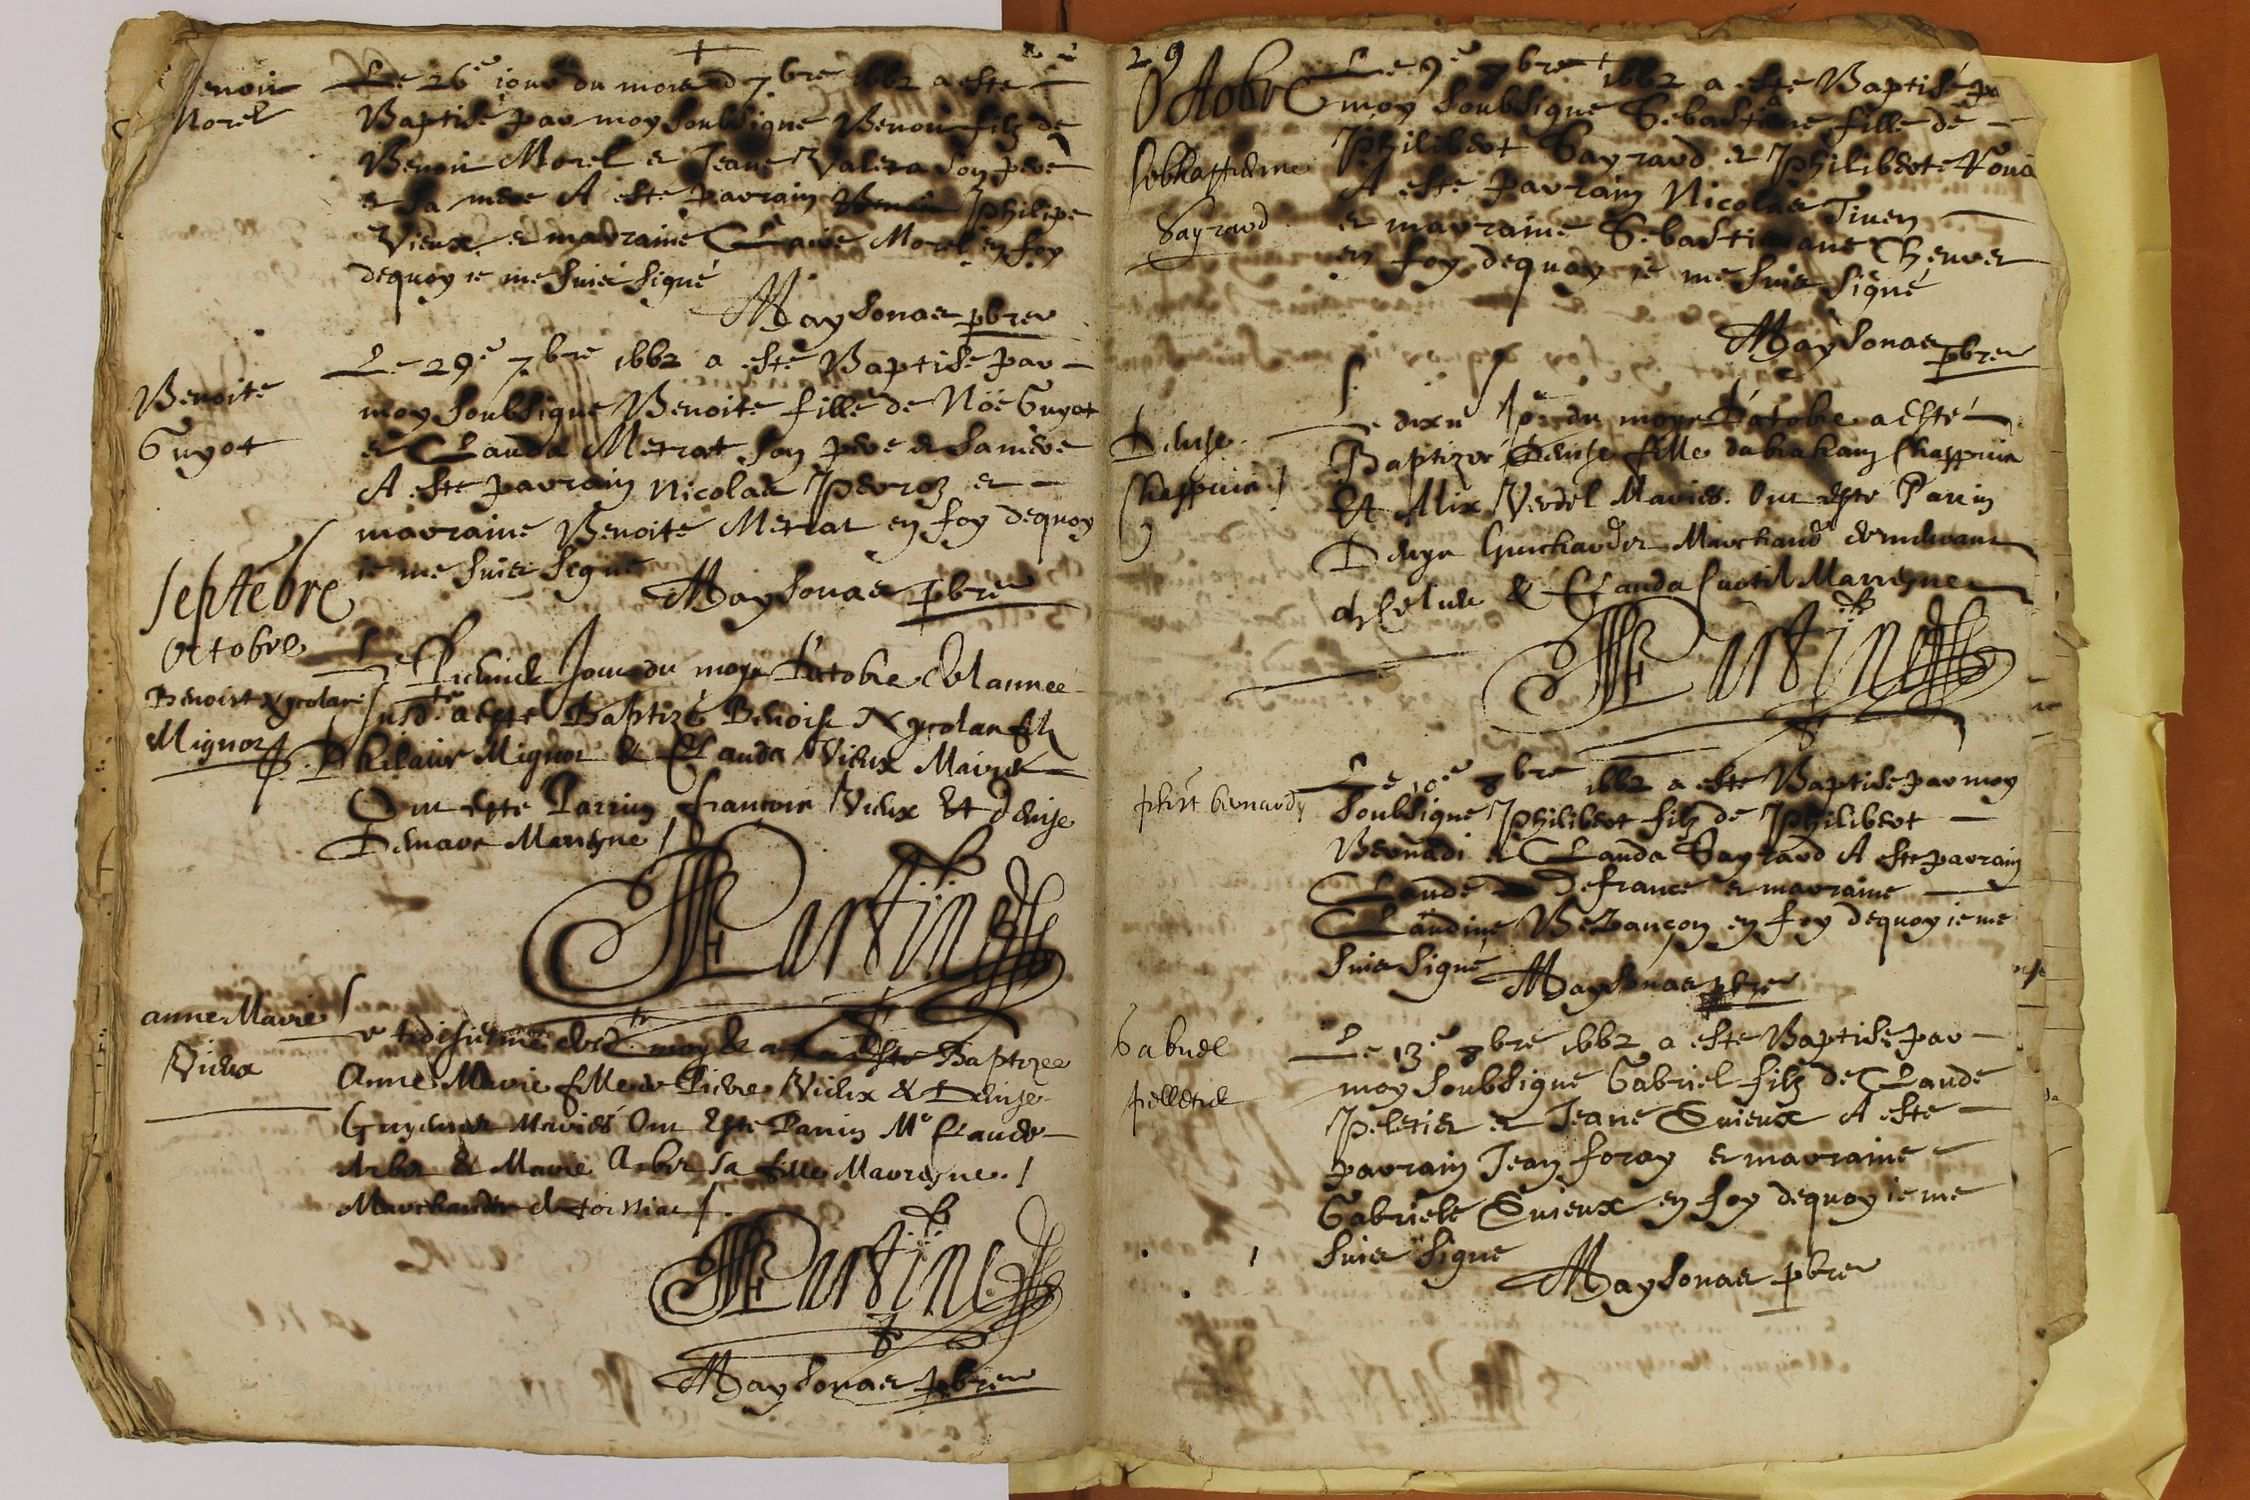 Benoit
Morel
Le 26e jour du mois d 7bre 1662 a este
Baptisé par moy soubsigne Benoit filz de
Benoit Morel et Jeane Valera son pere
et sa mere A este parrain Philipe
Vieux et marraine Claire Morel en foy
dequoy ie me suis signé
Maysonas pbre
Benoite
Guyot
Le 29e 7bre 1662 a este Baptisé par
moy soubsigne Benoite fille de Noé Guyot
et Clauda Metrat son pere et sa mere
A este parrain nicolas Peroz et
marraine Benoite Metrat en foy dequoy
ie me suis signe
Maysonas pbre
septebre
octobre
Benoist Nycolas
Mignot
Le jour du moys d'octobre de lannee
susdte a este Baptizé Benoist Nycolas filz
D hilaire Mignot & Clauda Vieux Mariés
Ont este Parrin francois Vieux Et Denise
Demare Marreyne
anne Marie
Vieux
Le troisiesme moys a este Baptizee
Anne Marie fille de Pierre Vieux & Denise
Mariés Ont Este Parrin Me Claude
Arber & Marie Arber sa fille Marreyne
Marchander de
Maysonas pbre
29
Octobre
Sebastienne
Sayrard
Le 9e 8bre 1662 a este Baptisé pa
moy soubsigne Sebastiane fille de
Philibert Sayrard et Philiberte
A este parrain Nicolas Tiven
et marraine Sebastiane Chervet
en foy dequoy ie me suis signé
Maysonas pbre
Denise
Chappuis
Le jour du moys D'octobe a esté
Baptizée Denise fille dabraham Chappuis
Et Alix Verdel Mariés. Ont este Parrin
Denys Marchand demeurant
& Clauda Marreyne
phirt bernardy
Le 10e 8bre 1662 a este Baptisé par moy
soubsigne Philibert filz de Philibert
Bernadi et Clauda Sayrard A este parrain
Claude Defrance et marraine
Claudine Bezançon en foy dequoy ie me
suis signé
Maysonas pbre
Gabriel
pelletie
Le 13e 8bre 1662 a este Baptisé par
moy soubsigne Gabriel filz de Claude
Peletier et Jeane Suieux A este
parrain Jean foray et marraine
Gabriele Suieux en foy dequoy ie me
suis signe
Maysonas pbre